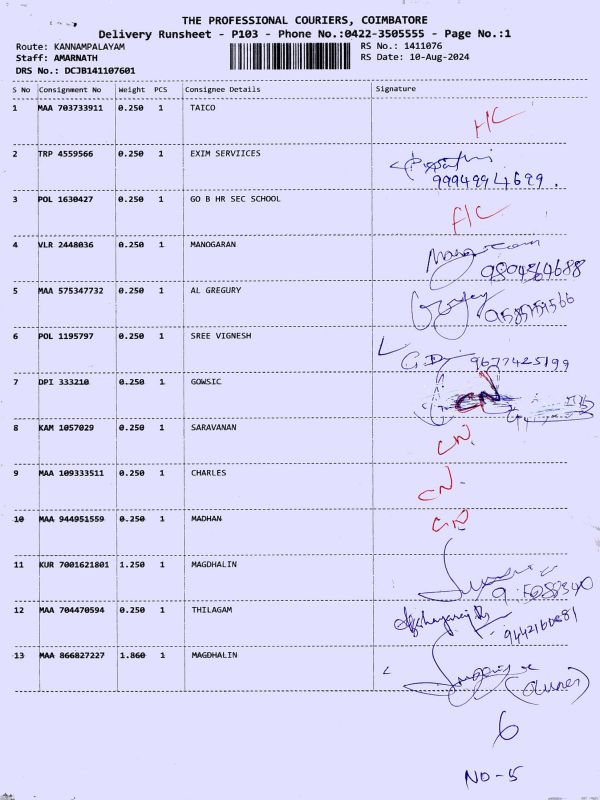 THE PROFESSIONAL COURIERS, COIMBATORE
Delivery Runsheet - P103 - Phone No.:0422-3505555 - Page No.:1
Route: KANNAMPALAYAM RS No.: 1411076
Staff: AMARNATH RS Date: 10-Aug-2024
DRS No.: DCJB141107601
S No Consignment No Weight PCS Consignee Details Signature
1 MAA 703733911 0.250 1 TAICO
2 TRP 4559566 0.250 1 EXIM SERVIICES
9994994699.
3 POL 1630427 0.250 1 GO B HR SEC SCHOOL
4 VLR 2448036 0.250 1 MANOGARAN
5 MAA 575347732 0.250 1 AL GREGURY
6 POL 1195797 0.250 1 SREE VIGNESH
9677425199
7 DPI 333210 0.250 1 GOWSIC CN
8 KAM 1057029 0.250 1 SARAVANAN CN.
9 MAA 109333511 0.250 1 CHARLES CN.
10 MAA 944951559 0.250 1 MADHAN CN
11 KUR 7001621801 1.250 1 MAGDHALIN
12 MAA 704470594 0.250 1 THILAGAM
13 MAA 866827227 1.860 1 MAGDHALIN
(Owner)
6
NO-5